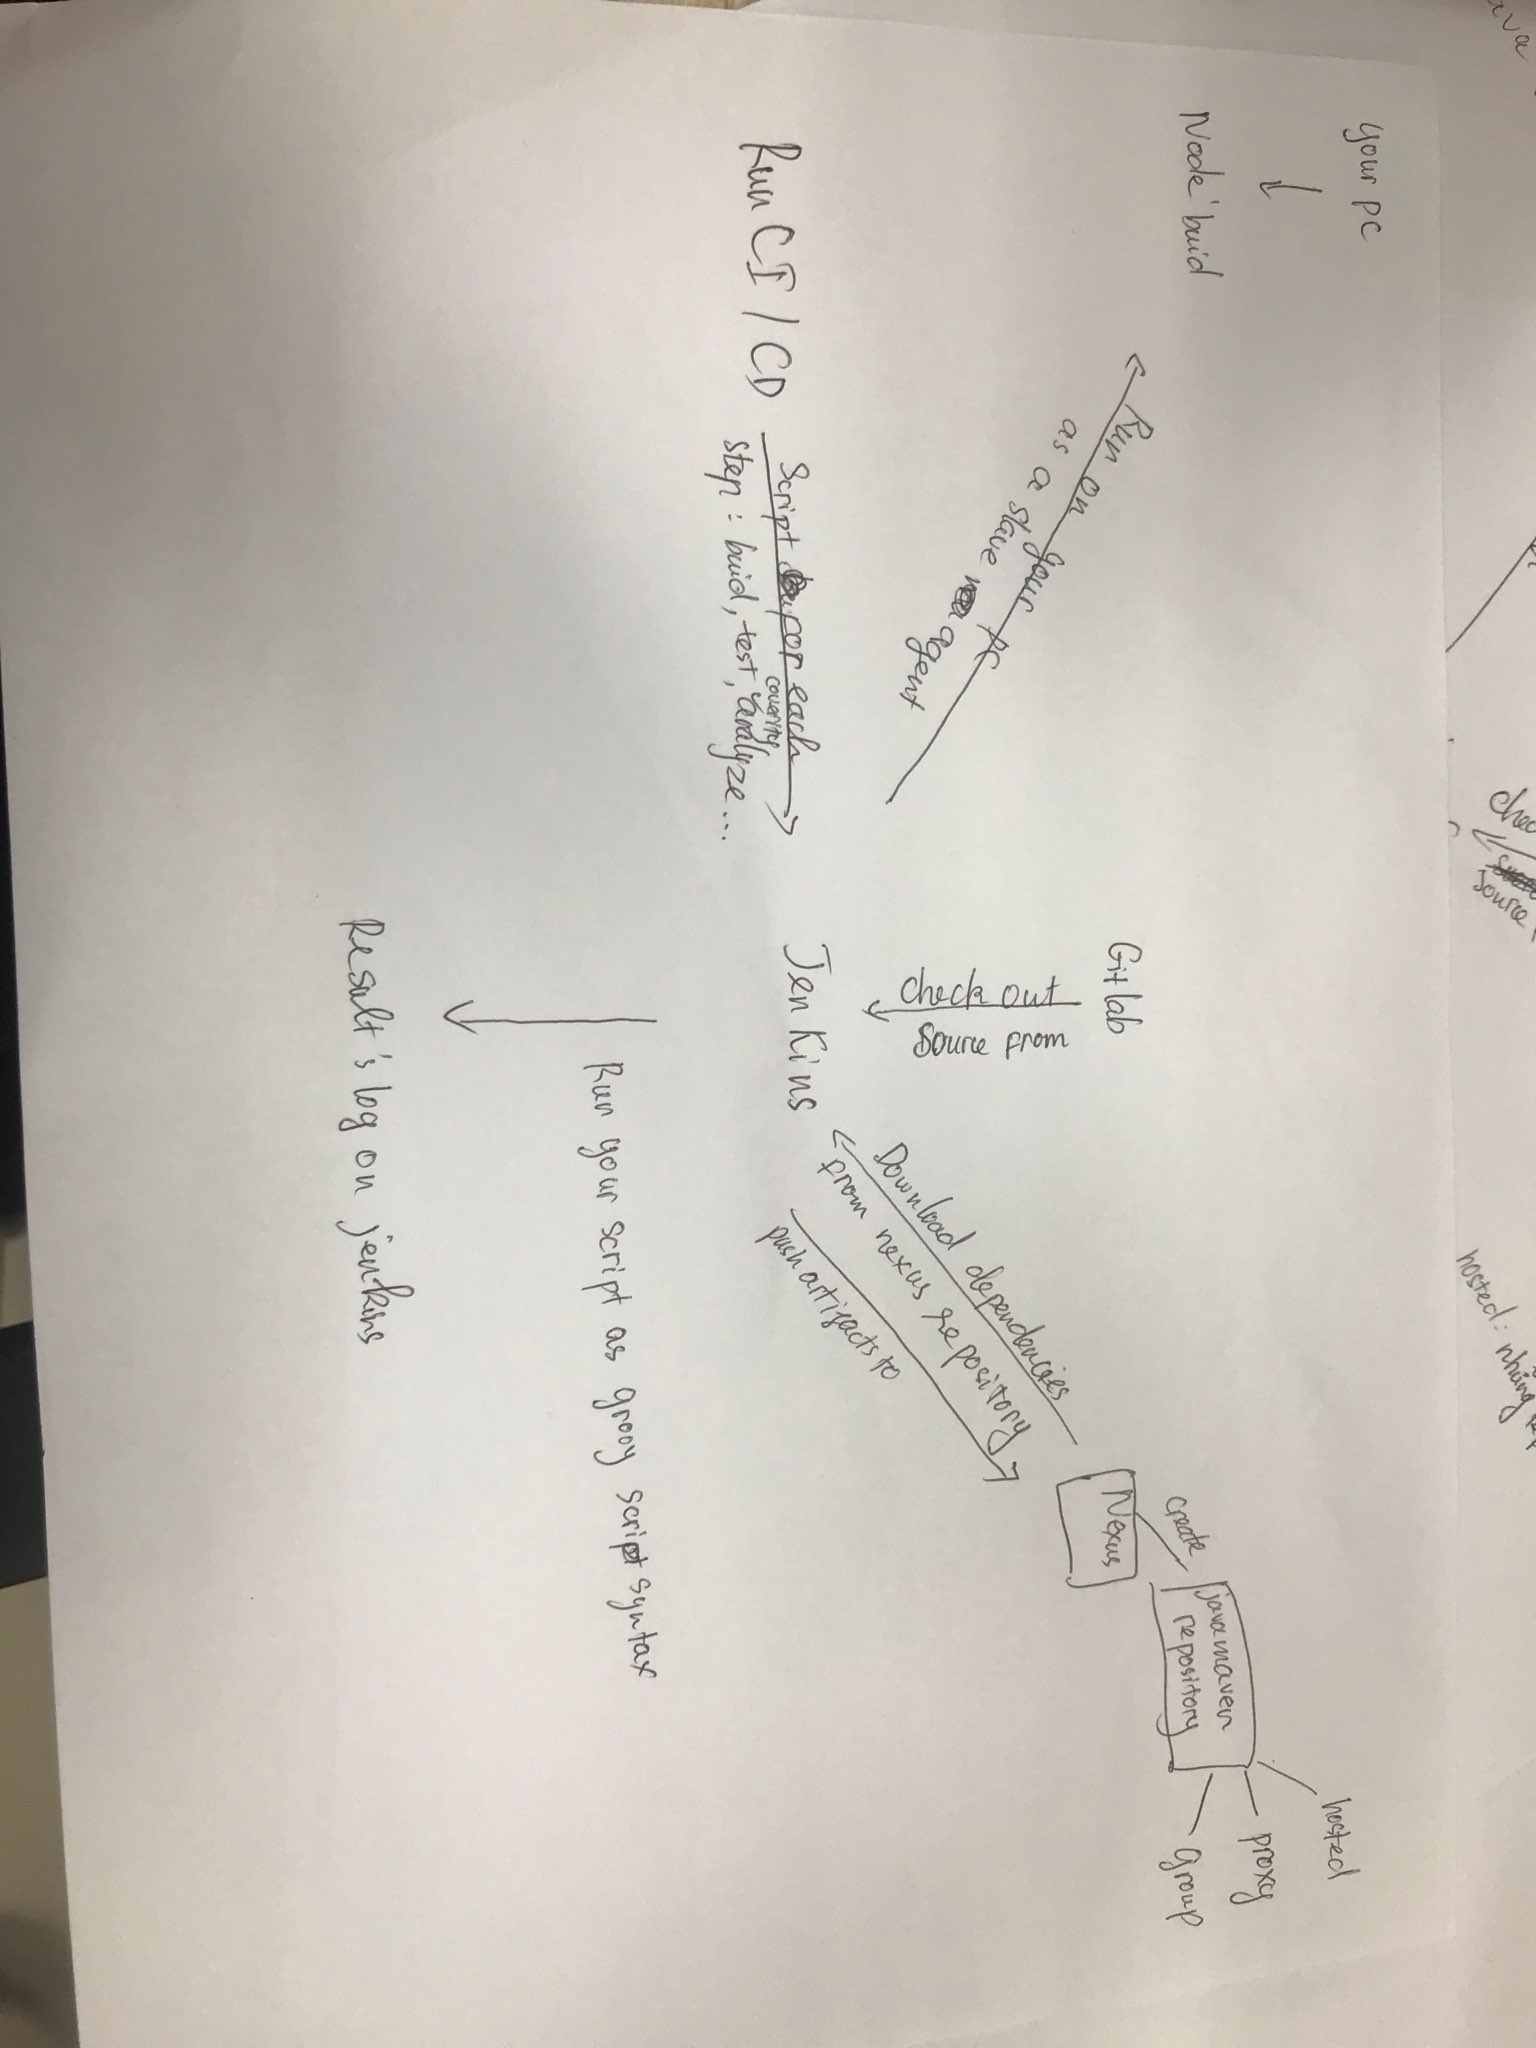 ava
hosted: những
your pc
Node buid
Run on your pc
as a slave agent
Gitlab
Check out
Source from
hosted
proxy
Group
java maven
repository
create
Nexus
Download dependencies
from nexus repository
push artifacts to
Jenkins
Run CI / CD
Script for each
coverity
step: buid, test, analyze...
Run your script as grooy script syntax
Result's log on jenkins